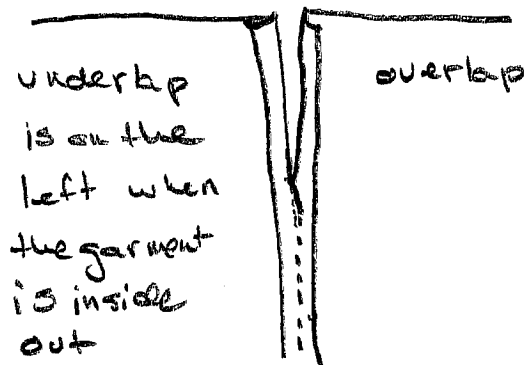 underlap
is on the
left when
the garment
is inside
out
overlap